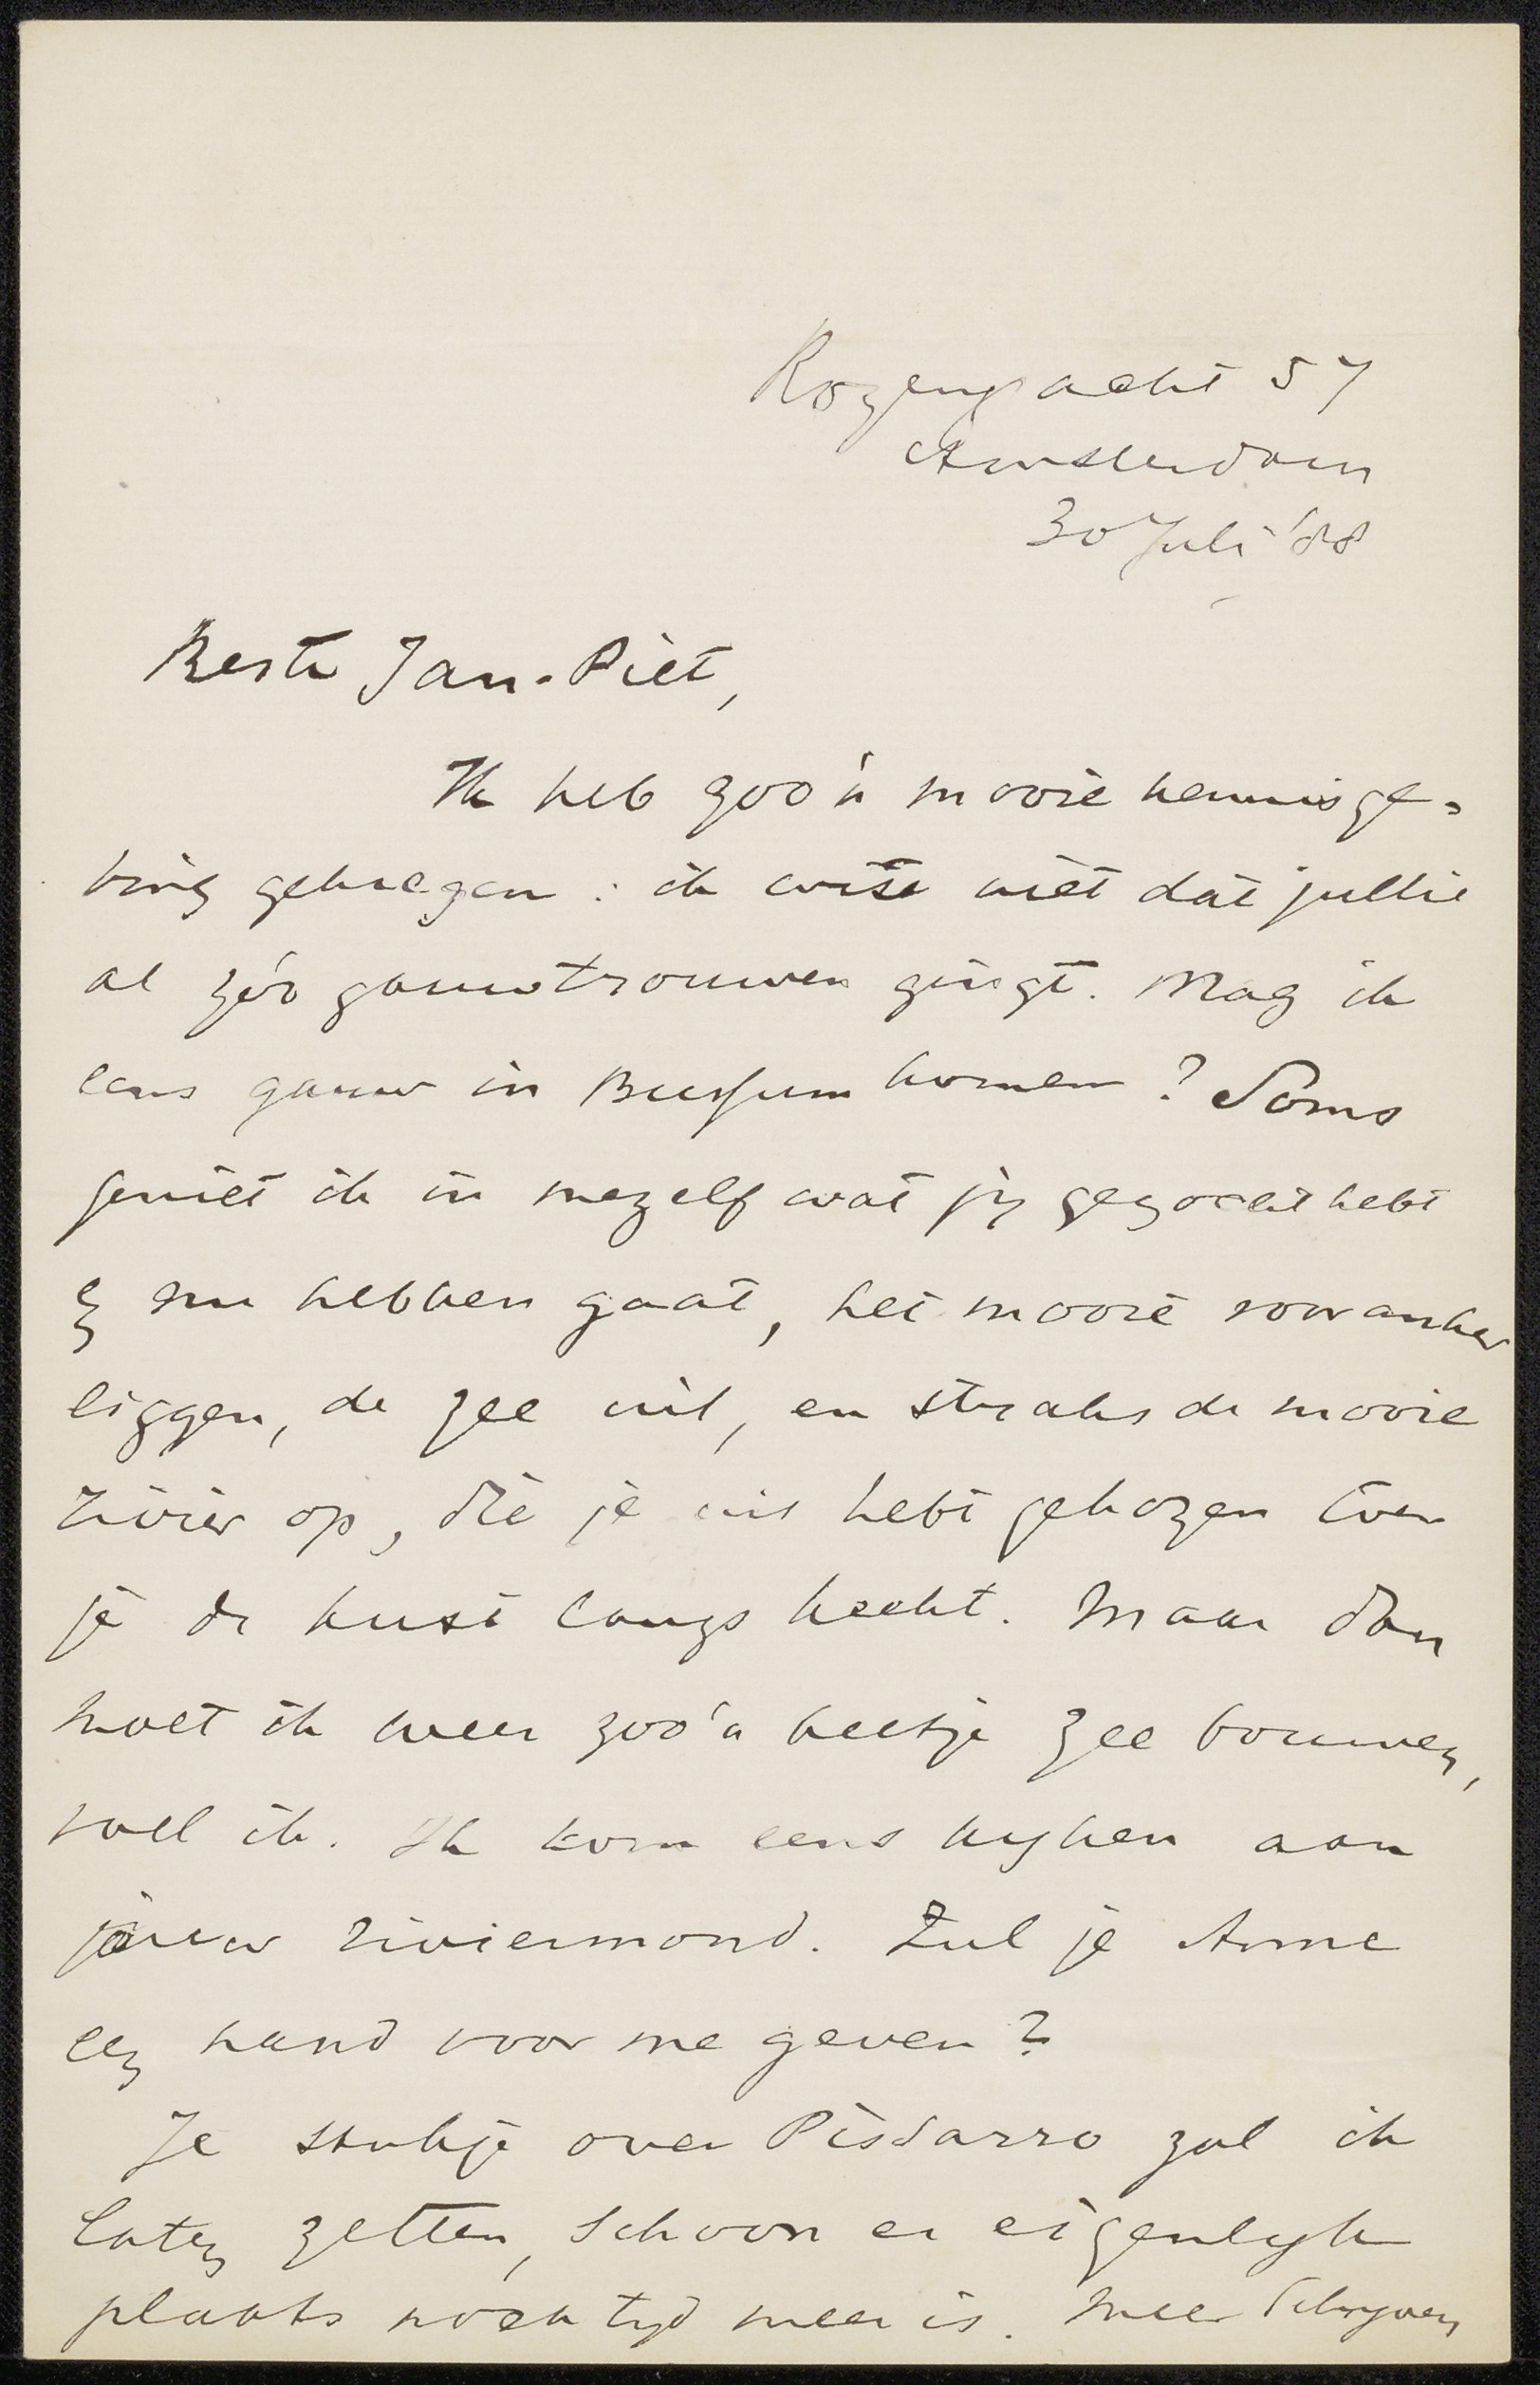 Rozengracht 57
Amsterdam
30 Juli '88
Beste Jan-Piet,
Ik heb zoo'n mooie kennisge-
ving gekregen: ik wist niet dat jullie
al zóo gauw trouwen gingt. Mag ik
eens gauw in Bussum komen? Soms
geniet ik in mezelf wat jij gezocht hebt
en nu hebben gaat, het mooie voor anker
liggen, de zee uit, en straks de mooie
rivier op, die je uit hebt gekozen toen
je de kust langs kwam. Maar dan
moet ik weer zoo'n beetje zee bouwen,
voel ik. Ik kom eens kijken aan
jouw riviermond. Zul je Anne
een hand voor me geven?
Je stukje over Pissarro zal ik
laten zetten, schoon er eigenlijk
plaats noch tijd meer is. Meer schrijven